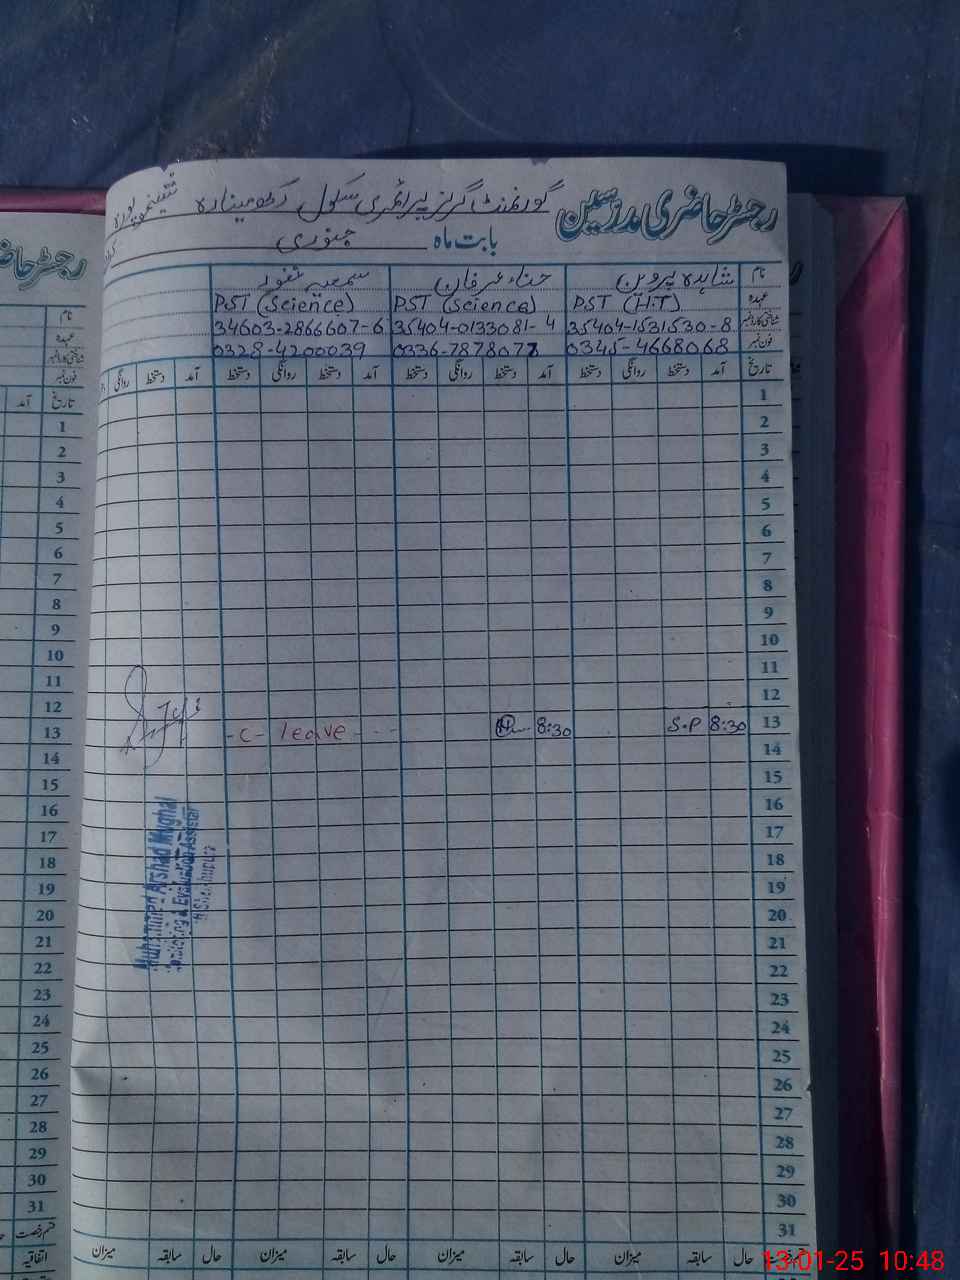 رجسٹر حاضری مدرسین گورنمنٹ گرلز پرائمری سکول
بابت ماہ جنوری
نام شاہدہ پروین حناء عرفان سمعیہ
عہدہ PST (H.T) PST (Science) PST (Science)
شناختی کارڈ نمبر 35404-1531530-8 35404-0133081-4 34603-2866607-6
فون نمبر 0345-4668068 0336-7878078 0328-4200039
تاریخ آمد دستخط روانگی دستخط آمد دستخط روانگی دستخط آمد دستخط روانگی دستخط آمد دستخط روانگی
1
2
3
4
5
6
7
8
9
10
11
12
13 8:30 S.P 8:30 -C- leave - - -
14
15
16
17
18
19
20
21
22
23
24
25
26
27
28
29
30
31
حال سابقہ میزان حال سابقہ میزان حال سابقہ میزان حال سابقہ میزان
Muhammad Arshad Mughal
Monitoring & Evaluation Assistant
Sheikhupura
رجسٹر حا
نام
عہدہ
شناختی کارڈ نمبر
فون نمبر
تاریخ آمد
1
2
3
4
5
6
7
8
9
10
11
12
13
14
15
16
17
18
19
20
21
22
23
24
25
26
27
28
29
30
31
قسم رخصت
اتفاقیہ
13-01-25 10:48